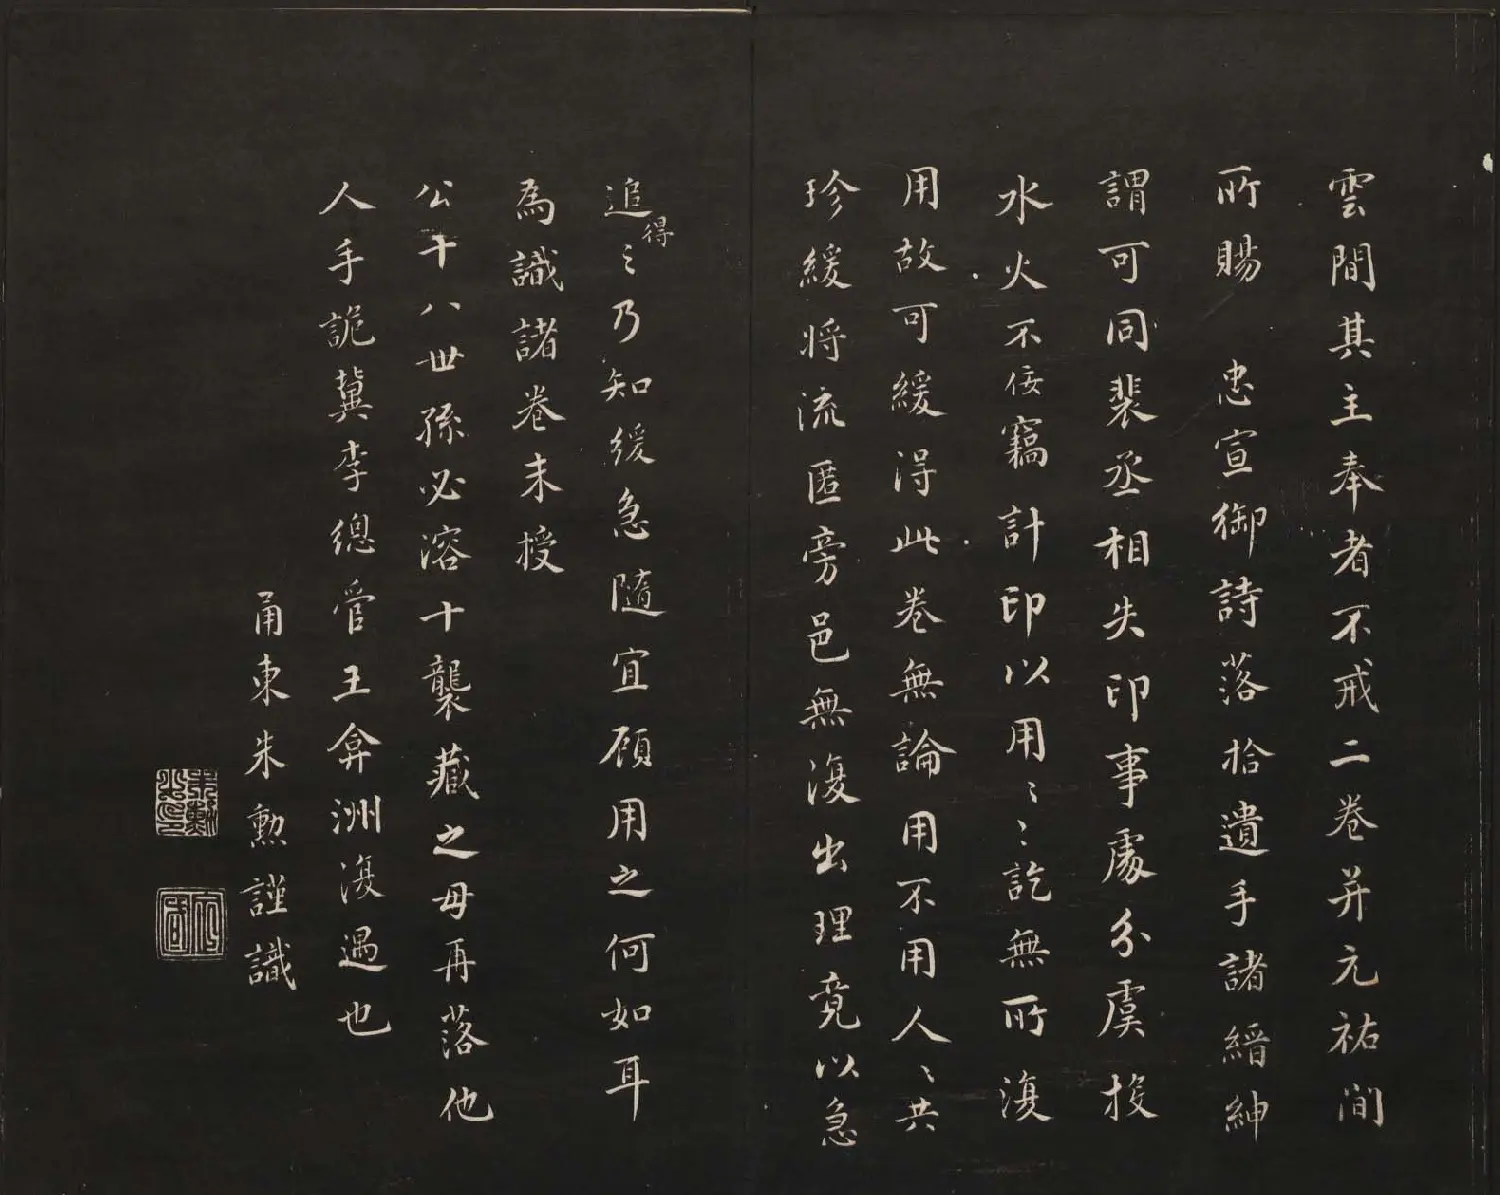 雲間其主奉者不戒二卷并元祐間
所賜 忠宣御詩落拾遺手諸縉紳
謂可同裴丞相失印事處分虞投
水火不佞竊計印以用〻〻訖無所復
用故可緩得此卷無論用不用人〻共
珍緩將流匿旁邑無復出理竟以急
追得〻乃知緩急隨宜顧用之何如耳
為識諸卷末授
公十八世孫必溶十襲藏之毋再落他
人手詭冀李總管王弇洲復遇也
甬東朱勲謹識